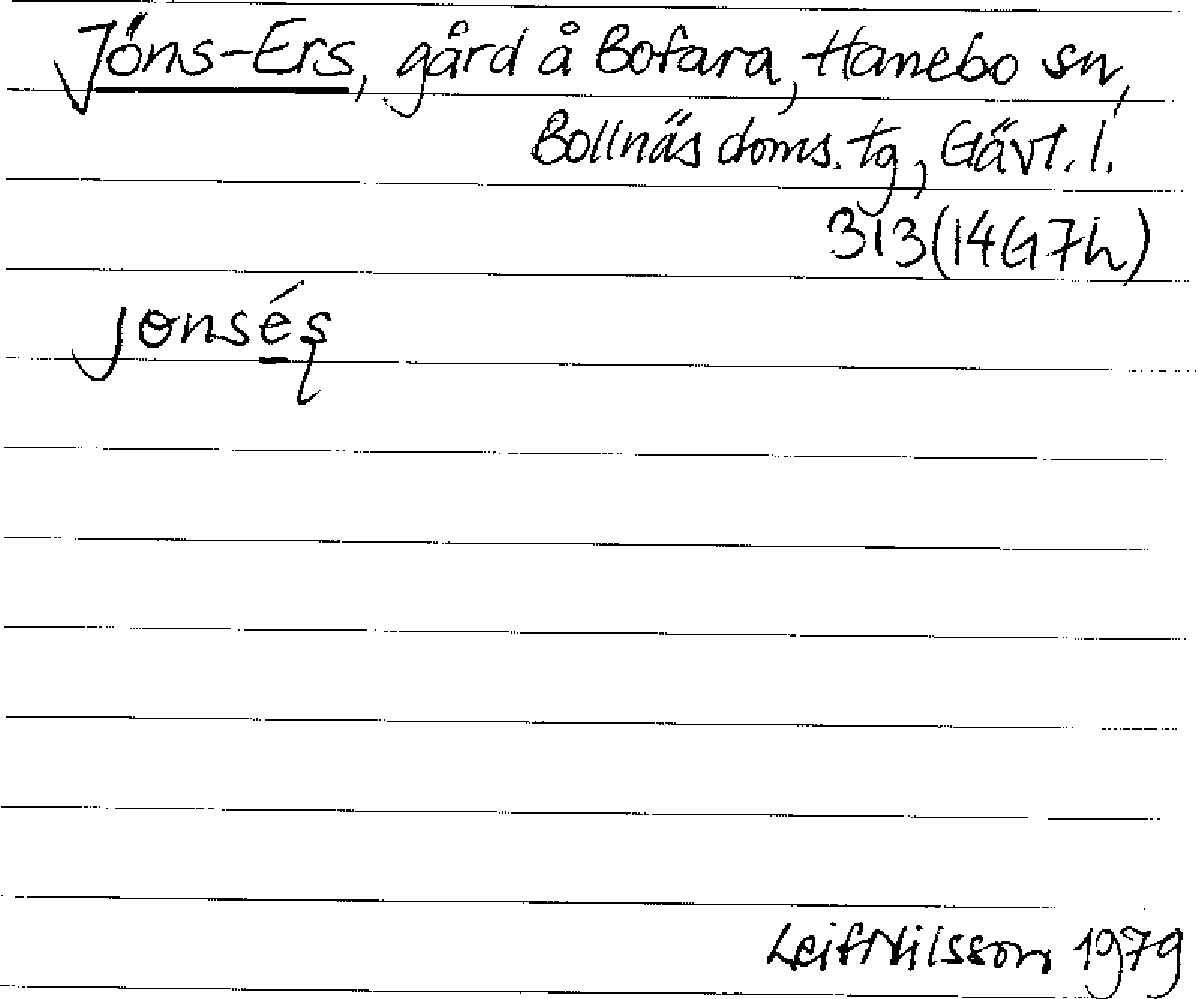 Jöns-Ers, gård å Bofara, Hanebo sn,
Bollnäs doms. tg, Gävl. l.
313 (14G7h)
jɵnsés̨
Leif Nilsson 1979